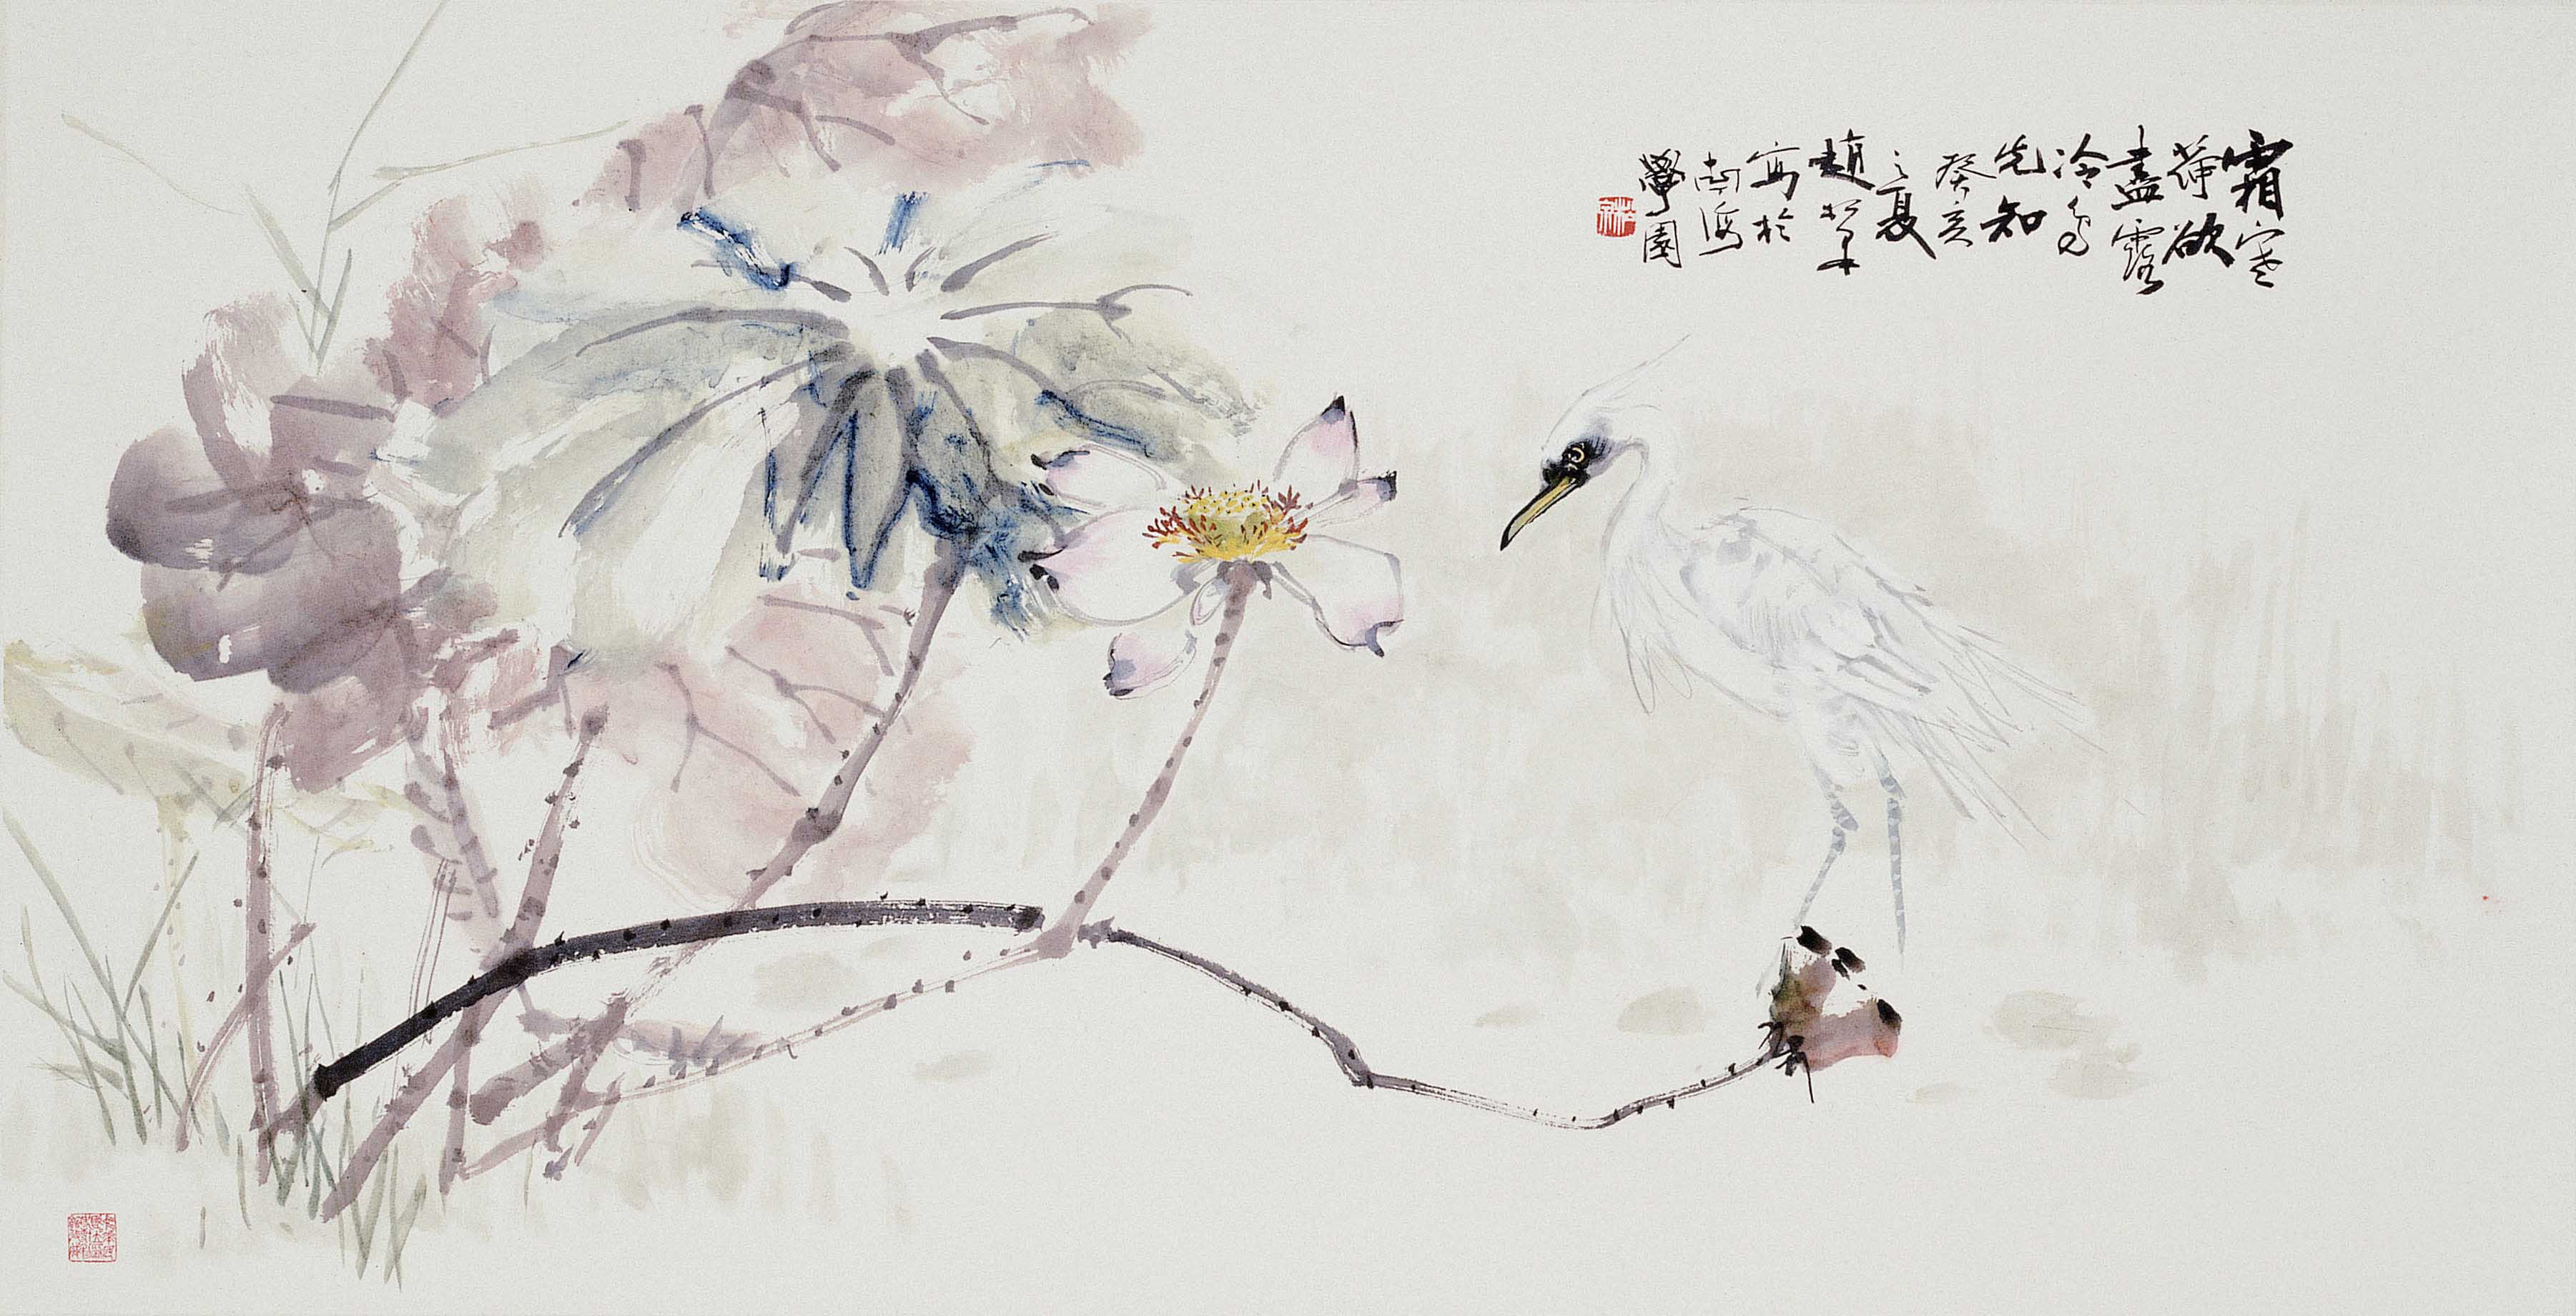 霜寒
葦欲
盡露
冷鳥
先知
癸亥
之夏
趙松泉
寫於
南海
學園